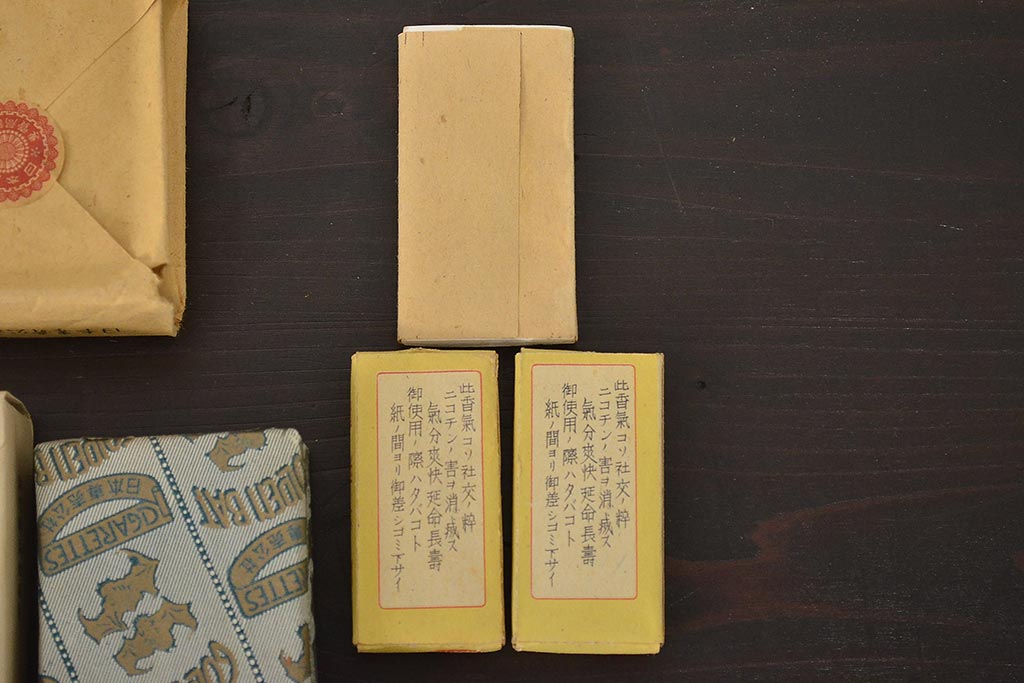 此香氣コソ社交ノ粋
ニコチンノ害ヲ消滅ス
氣分爽快延命長壽
御使用ノ際ハタバコト
紙ノ間ヨリ御差シゴミ下サイ
此香氣コソ社交ノ粋
ニコチンノ害ヲ消滅ス
氣分爽快延命長壽
御使用ノ際ハタバコト
紙ノ間ヨリ御差シゴミ下サイ
日本專売公社
CIGARETTES
GOLDEN BAT